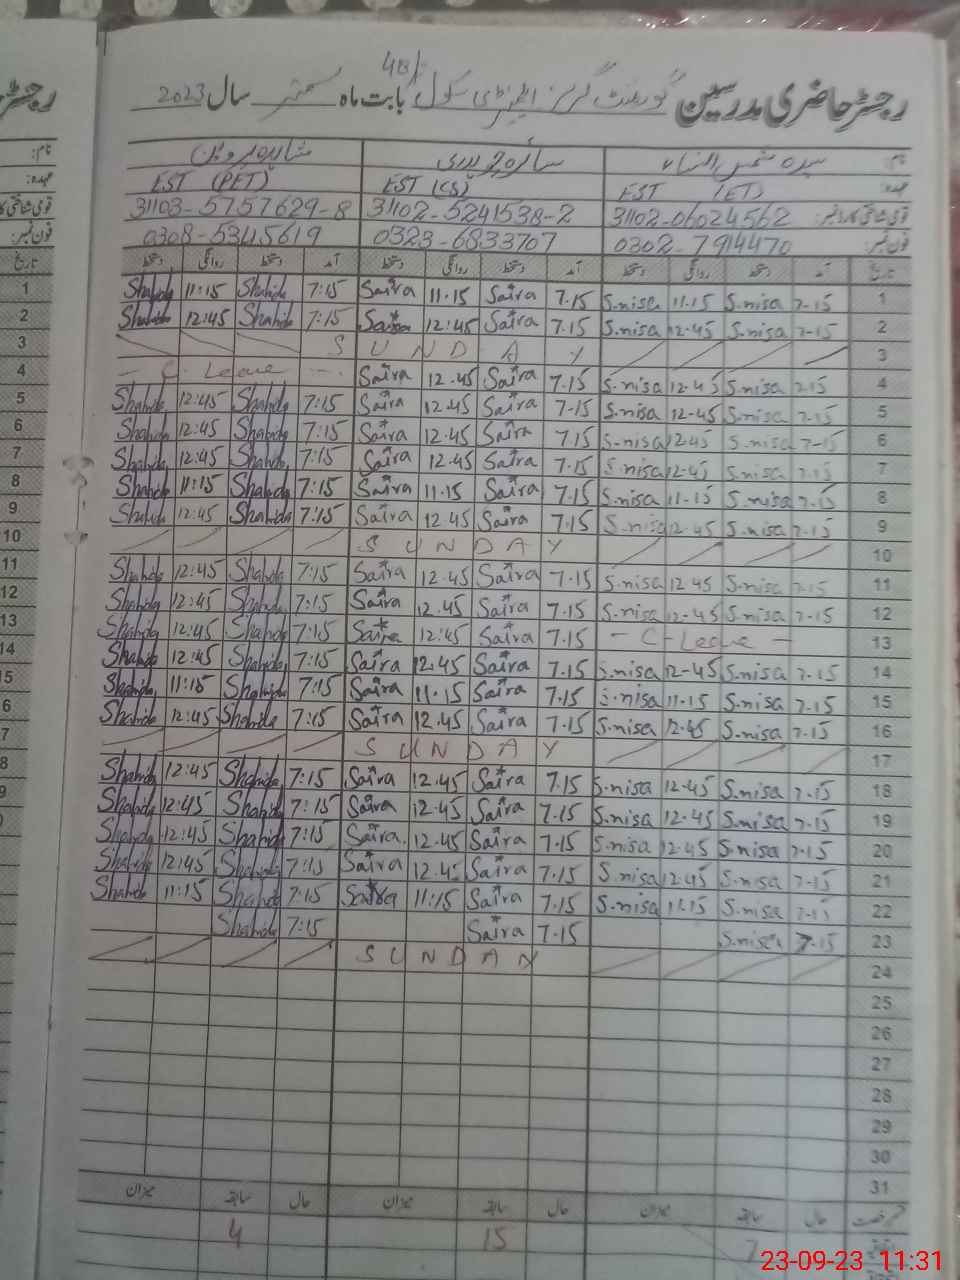 48/
رجسٹر حاضری مدرسین گورنمنٹ گرلز ایلیمنٹری سکول بابت ماہ ستمبر سال 2023
نام: سیدہ شمس النساء سائرہ چوہدری شاہدہ پروین
عہدہ: EST (ET) EST (CS) EST (PET)
31102-06024562 31102-5241538-2 31103-5757629-8
فون نمبر: 0302-7914470 0323-6833707 0308-5345619
تاریخ آمد دستخط روانگی دستخط آمد دستخط روانگی دستخط آمد دستخط روانگی دستخط تاریخ
1 Shahida 11:15 Shahida 7:15 Saira 11.15 Saira 7.15 S.nisa 11.15 S.nisa 7-15 1
2 Shahida 12:45 Shahida 7:15 Saira 12:45 Saira 7.15 S.nisa 12-45 S.nisa 7-15 2
3 SUNDAY 3
4 - C. Leave - Saira 12.45 Saira 7.15 S.nisa 12-45 S.nisa 7.15 4
5 Shahida 12:45 Shahida 7:15 Saira 12.45 Saira 7-15 S.nisa 12-45 S.nisa 7-15 5
6 Shahida 12:45 Shahida 7:15 Saira 12.45 Saira 7.15 S.nisa 12.45 S.nisa 7-15 6
7 Shahida 12:45 Shahida 7:15 Saira 12.45 Saira 7.15 S.nisa 12-45 S.nisa 7.15 7
8 Shahida 11:15 Shahida 7:15 Saira 11.15 Saira 7.15 S.nisa 11-15 S.nisa 7-15 8
9 Shahida 12:45 Shahida 7:15 Saira 12.45 Saira 7.15 S.nisa 12.45 S.nisa 7-15 9
10 SUNDAY 10
11 Shahida 12:45 Shahida 7:15 Saira 12.45 Saira 7.15 S.nisa 12.45 S.nisa 7.15 11
12 Shahida 12:45 Shahida 7:15 Saira 12.45 Saira 7.15 S.nisa 12-45 S.nisa 7-15 12
13 Shahida 12:45 Shahida 7:15 Saira 12:45 Saira 7.15 - C-Leave - 13
14 Shahida 12:45 Shahida 7:15 Saira 12.45 Saira 7.15 S.nisa 12-45 S.nisa 7-15 14
15 Shahida 11:15 Shahida 7:15 Saira 11.15 Saira 7.15 S.nisa 11.15 S.nisa 7.15 15
6 Shahida 12:45 Shahida 7:15 Saira 12.45 Saira 7.15 S.nisa 12.45 S.nisa 7.15 16
7 SUNDAY 17
8 Shahida 12:45 Shahida 7:15 Saira 12.45 Saira 7.15 S.nisa 12.45 S.nisa 7-15 18
9 Shahida 12:45 Shahida 7:15 Saira 12.45 Saira 7.15 S.nisa 12.45 S.nisa 7.15 19
Shahida 12:45 Shahida 7:15 Saira 12.45 Saira 7.15 S.nisa 12.45 S.nisa 7.15 20
Shahida 12:45 Shahida 7:15 Saira 12.45 Saira 7.15 S.nisa 12.45 S.nisa 7-15 21
Shahida 11:15 Shahida 7:15 Saira 11:15 Saira 7.15 S.nisa 11.15 S.nisa 7-15 22
Shahida 7:15 Saira 7.15 S.nisa 7.15 23
SUNDAY 24
25
26
27
28
29
30
31
حال سابقہ میزان حال سابقہ میزان حال سابقہ میزان
7 15 4
23-09-23 11:31